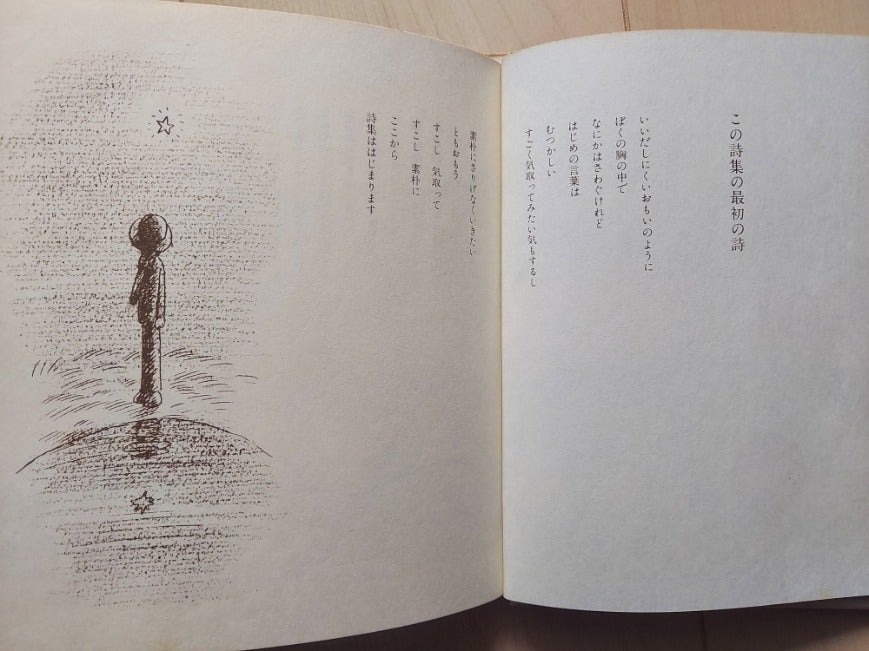 この詩集の最初の詩
いいだしにくいおもいのように
ぼくの胸の中で
なにかはさわぐけれど
はじめの言葉は
むつかしい
すごく気取ってみたい気もするし
素朴にさりげなくいきたい
ともおもう
すこし　気取って
すこし　素朴に
ここから
詩集ははじまります